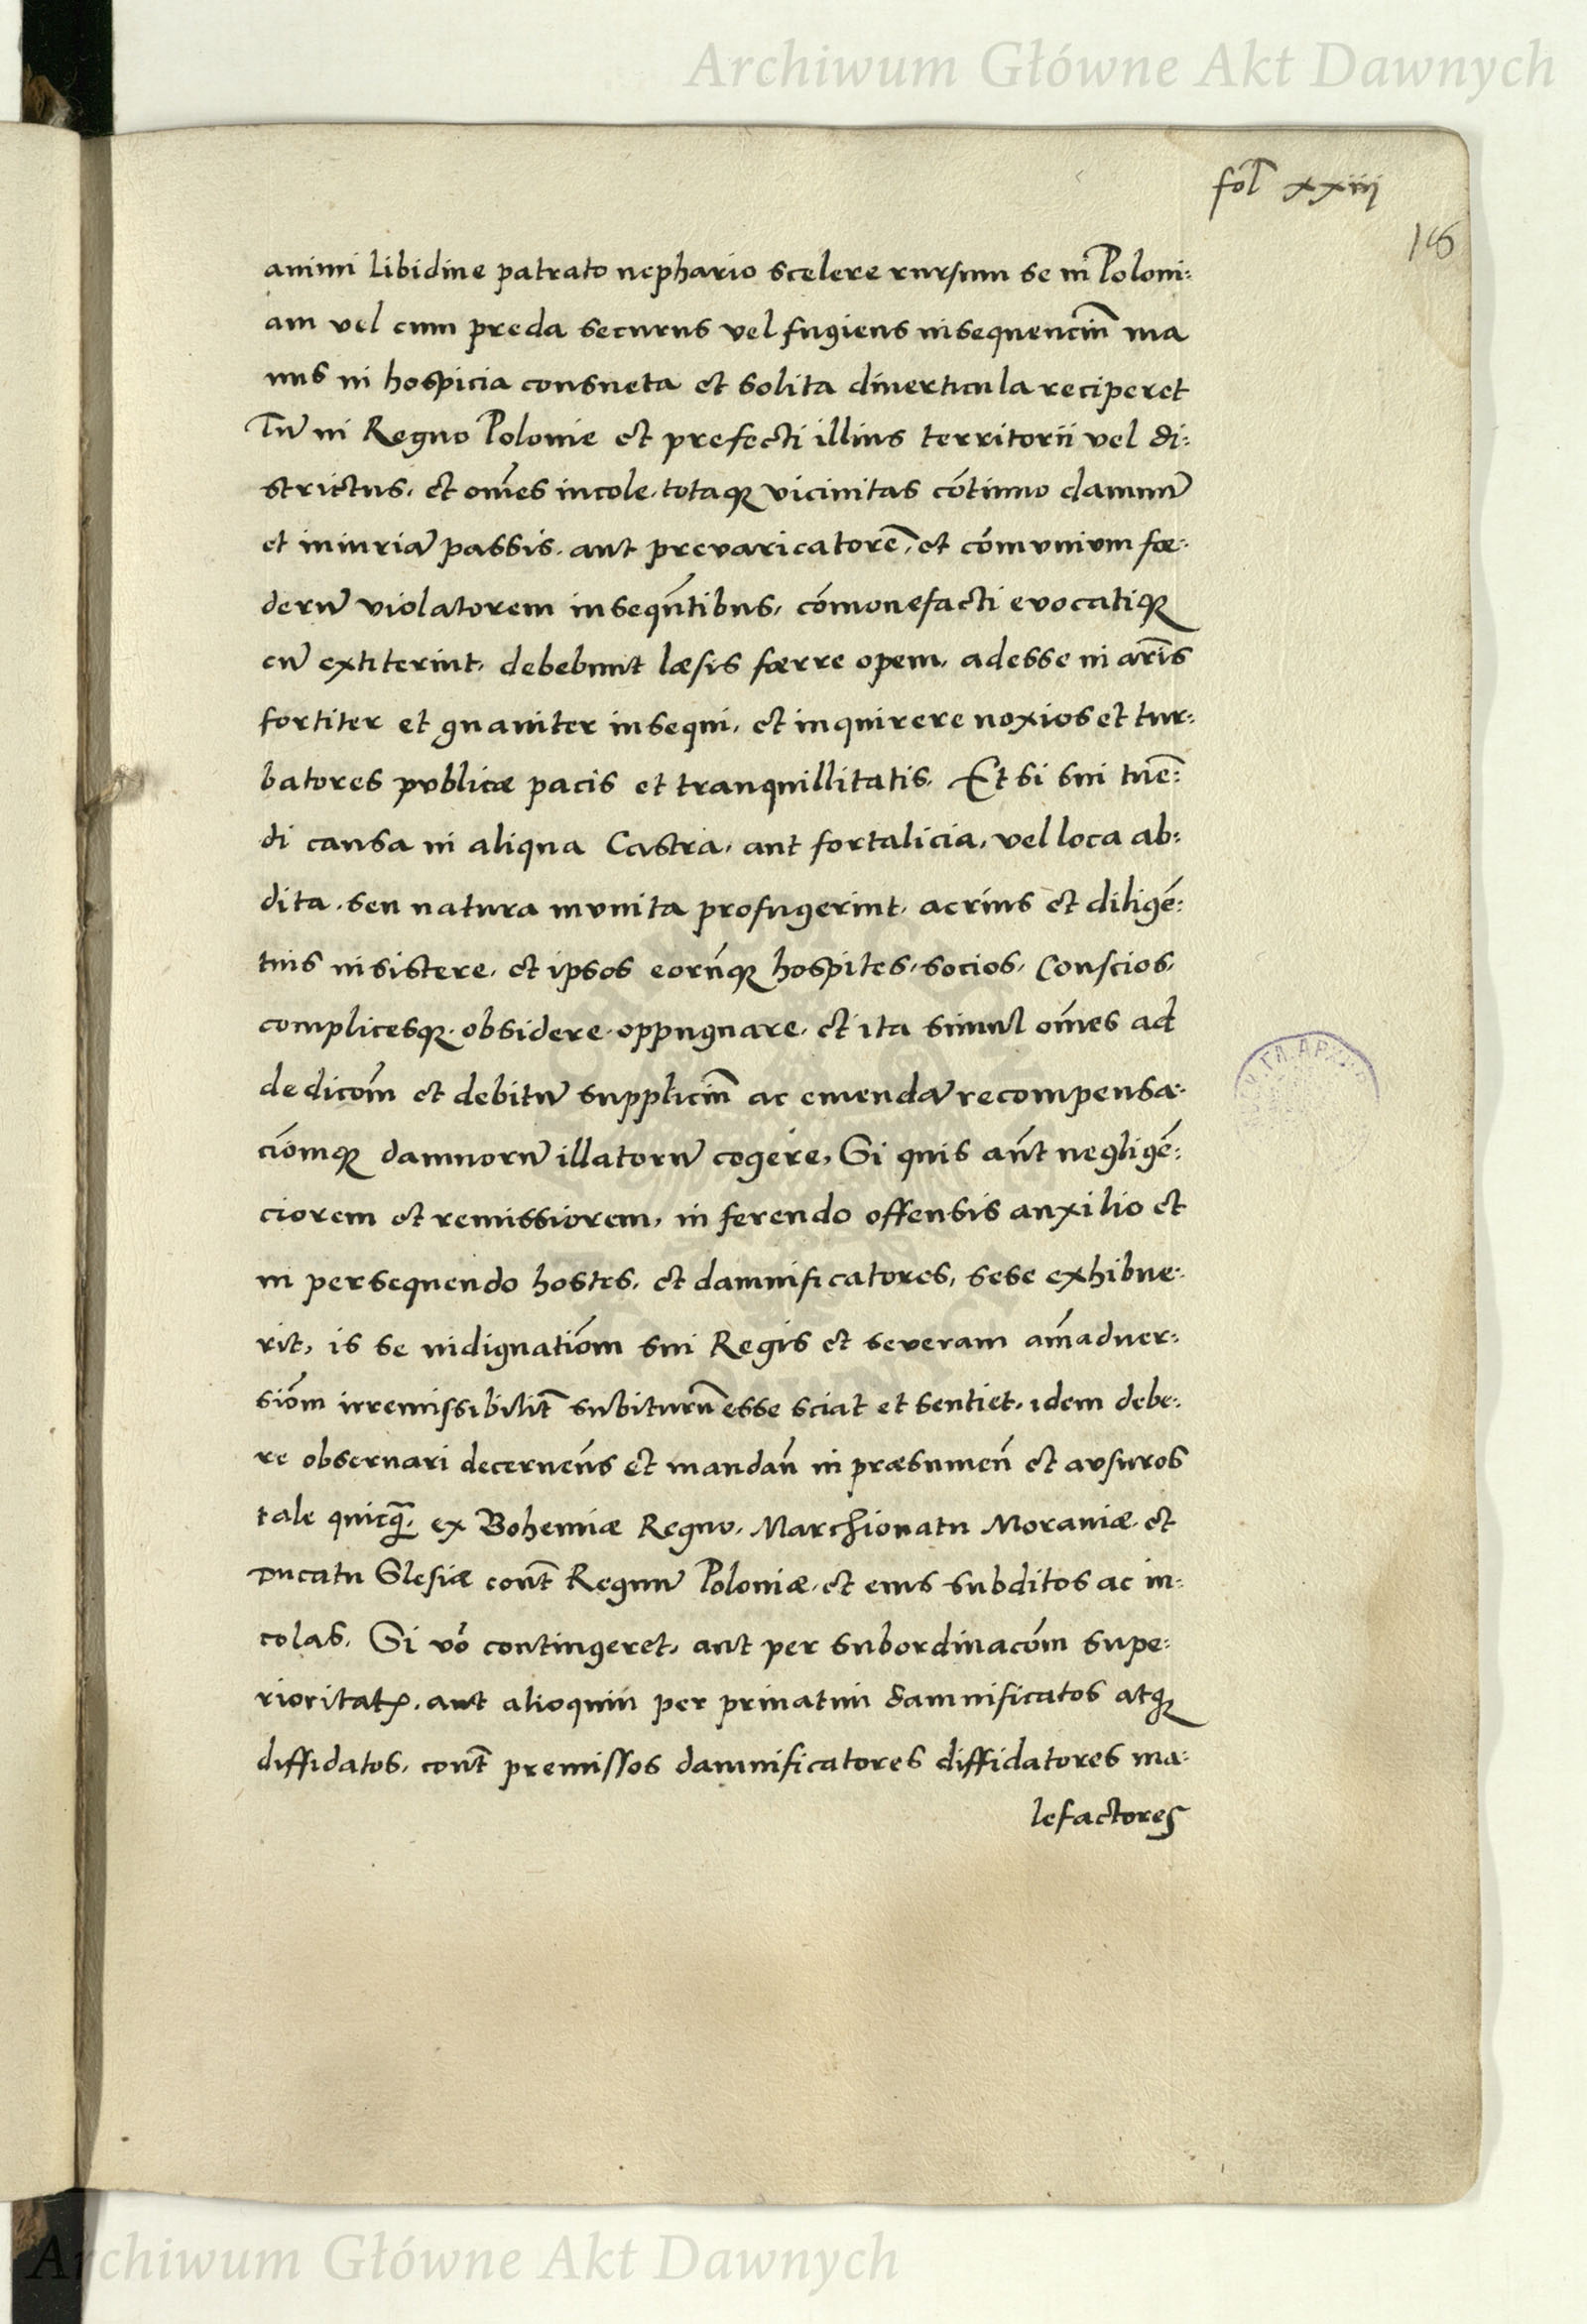 Archiwum Główne Akt Dawnych
fol̃ xxiiij
animi libidine patrato nephario scelere rursum se in Poloni:
am vel cum preda securus vel fugiens insequenciũ ma
nus in hospicia consueta et solita diuerticula reciperet
Tũ in Regno Polonie et prefecti illius territorii vel di:
strictus, et om̃es incole, totaqꝫ vicinitas cõtinuo damnũ
et iniuriã passis, aut prevaricatorẽ, et cõmvnivm fœ:
derũ violatorem inseqũtibus, cõmonefacti evocatiqꝫ
cũ extiterint, debebunt læsis færre opem, adesse in ar̃is
fortiter et gnauiter insequi, et inquirere noxios et tur:
batores pvblicæ pacis et tranquillitatis. Et si sui tuẽ:
di causa in aliqua Castra, aut fortalicia, vel loca ab:
dita, seu natura mvnita profugerint, acrius et diligẽ:
tius insistere, et ipsos eorũqꝫ hospites, socios, Conscios,
complicesqꝫ obsidere, oppugnare, et ita simul om̃es ad
dedicõm et debitũ suppliciũ ac emendã recompensa:
ciõmqꝫ damnorũ illatorũ cogere, Si quis aũt negligẽ:
ciorem et remissiorem, in ferendo offensis auxilio et
in persequendo hostes, et damnificatores, sese exhibue:
rit, is se indignatiõm sui Regis et severam am̃aduer:
siõm irremissibilit̃ subiturũ esse sciat et sentiet, idem debe:
re obseruari decerneñs et mandañ in præsumeñ et avsuros
tale quicq̃, ex Bohemiæ Regno, Marchionatu Morauiæ et
Ducatu Slesiæ cont̃ Regnũ Poloniæ, et eius subditos ac in:
colas. Si võ contingeret, aut per subordinacõm supe:
rioritatꝭ, aut alioquin per priuatim damnificatos atqꝫ
diffidatos, cont̃ premissos damnificatores diffidatores ma:
lefactores
Archiwum Główne Akt Dawnych